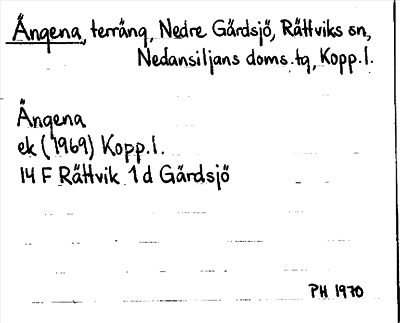 Ängena, terräng, Nedre Gärdsjö, Rättviks sn,
Nedansiljans doms.tg, Kopp.l.
Ängena
ek (1969) Kopp.l.
14 F Rättvik 1 d Gärdsjö
PH 1970